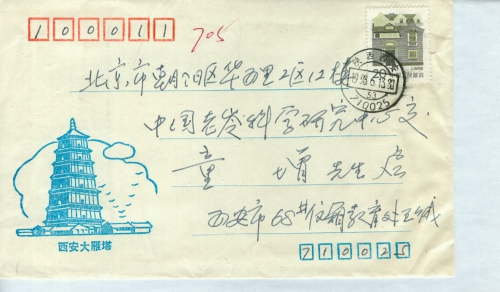 100011 705
20
陕西西安
710025
北京市朝阳区华西里2区12楼
中国老龄科学研究中心交
童 先生启
西安市68#信箱教育处王
西安大雁塔
710025